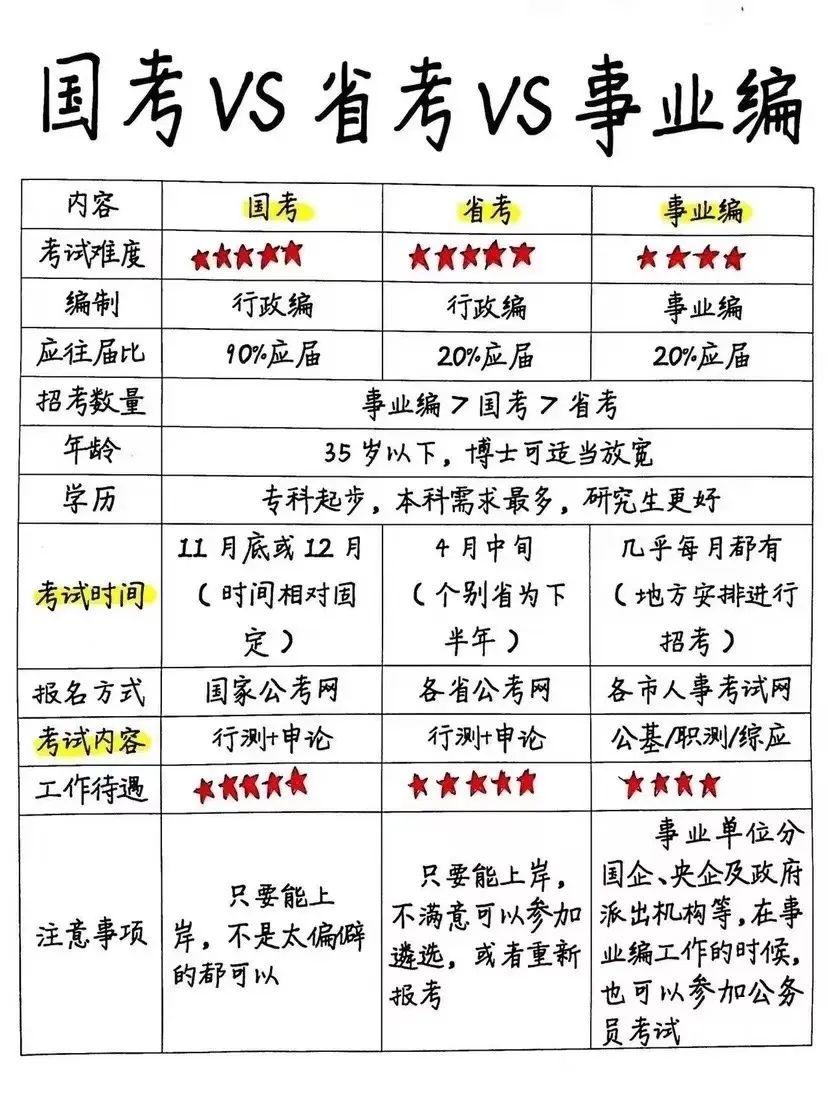 国考VS省考VS事业编
内容 国考 省考 事业编
考试难度 ★★★★★ ★★★★★ ★★★★
编制 行政编 行政编 事业编
应往届比 90%应届 20%应届 20%应届
招考数量 事业编>国考>省考
年龄 35岁以下，博士可适当放宽
学历 专科起步，本科需求最多，研究生更好
考试时间
11月底或12月
（时间相对国
定）
4月中旬
（个别省为下
半年）
几乎每月都有
（地方安排进行
招考）
报名方式 国家公考网 各省公考网 各市人事考试网
考试内容 行测+申论 行测+申论 公基/职测/综应
工作待遇 ★★★★★ ★★★★★ ★★★★
注意事项
只要能上
岸，不是太偏僻
的都可以
只要能上岸，
不满意可以参加
遴选，或者重新
报考
事业单位分
国企、央企及政府
派出机构等，在事
业编工作的时候，
也可以参加公务
员考试